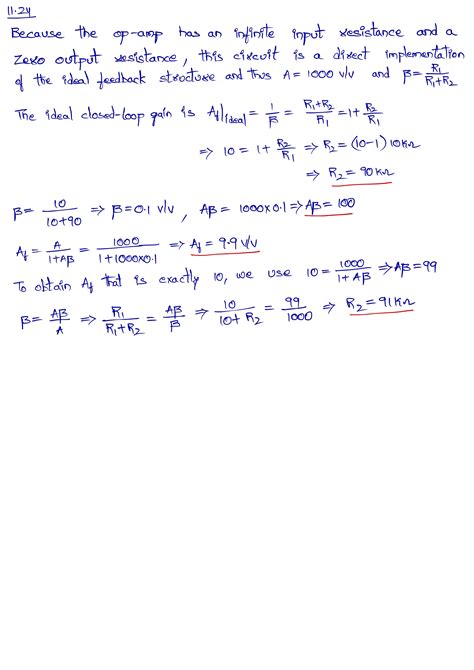 11.24
Because the op-amp has an infinite input resistance and a
zero output resistance, this circuit is a direct implementation
of the ideal feedback structure and thus A = 1000 V/V and β = R₁/(R₁+R₂)
The ideal closed-loop gain is A_f|ideal = 1/β = (R₁+R₂)/R₁ = 1 + R₂/R₁
⇒ 10 = 1 + R₂/R₁ ⇒ R₂ = (10-1) 10KΩ
⇒ R₂ = 90KΩ
β = 10/(10+90) ⇒ β = 0.1 V/V, Aβ = 1000×0.1 ⇒ Aβ = 100
A_f = A/(1+Aβ) = 1000/(1+1000×0.1) ⇒ A_f = 9.9 V/V
To obtain A_f that is exactly 10, we use 10 = 1000/(1+Aβ) ⇒ Aβ = 99
β = Aβ/A ⇒ R₁/(R₁+R₂) = Aβ/β ⇒ 10/(10+R₂) = 99/1000 ⇒ R₂ = 91KΩ